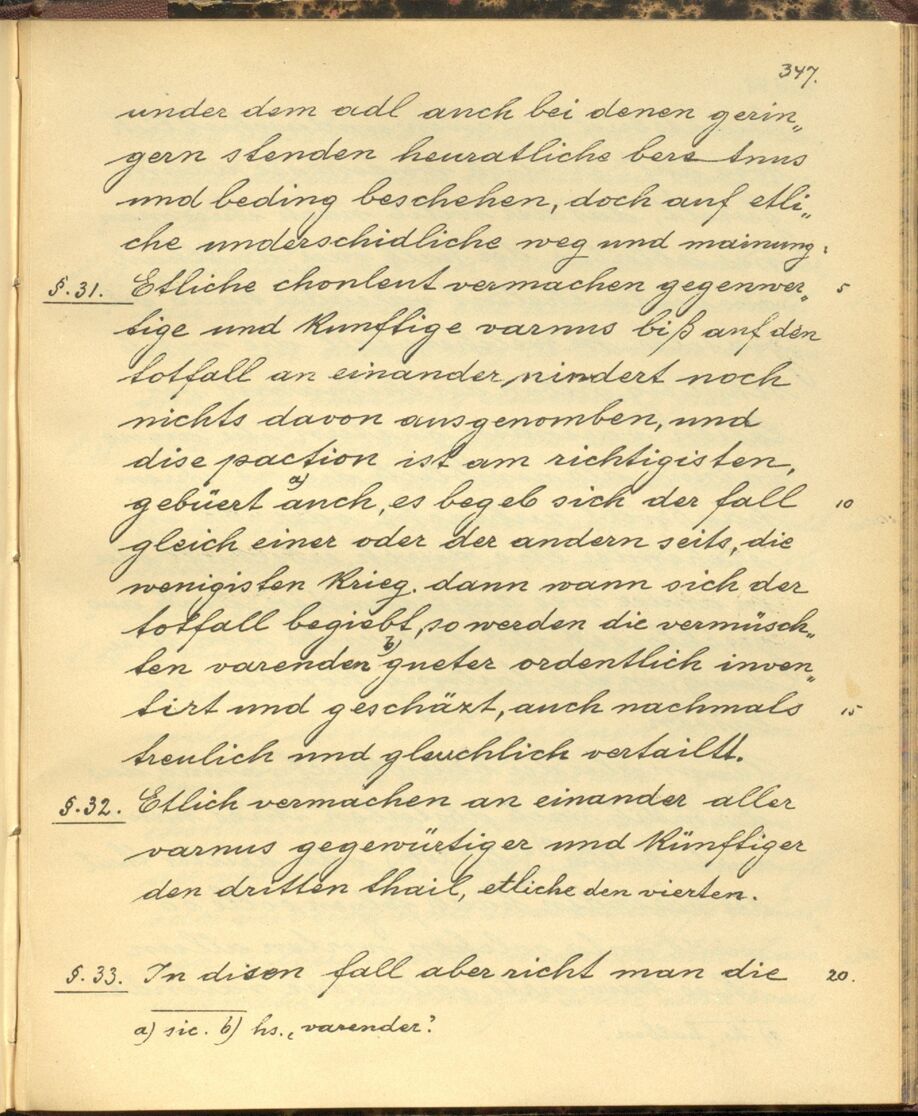 347.
under dem adl auch bei denen gerin„
gern stenden heuratliche beretnus
und beding beschehen, doch auf etli„
che underschidliche weg und mainung:
§. 31. Etliche chonleut vermachen gegenwer„ 5
tige und kunftige varnus biß auf den
totfall an einander, nindert noch
nichts davon ausgenomben, und
dise paction ist am richtigisten,
gebüert a) auch, es begeb sich der fall 10
gleich einer oder der andern seits, die
wenigisten krieg. dann wann sich der
totfall begiebt, so werden die vermüsch„
ten varenden b) gueter ordentlich inven„
tirt und geschäzt, auch nachmals 15
treulich und gleuchlich vertailtt.
§. 32. Etlich vermachen an einander aller
varnus gegewürtiger und künftiger
den dritten thail, etliche den vierten.
§. 33. In disen fall aber richt man die 20.
a) sic. b) hs. „varender“.